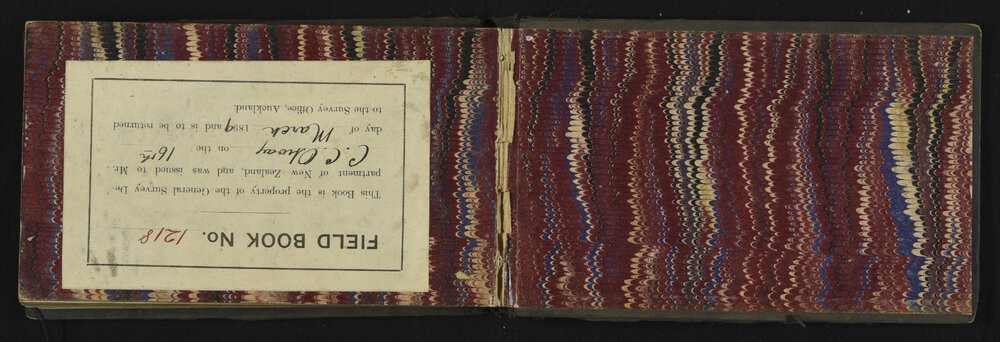 FIELD BOOK No. 1218
This Book is the property of the General Survey De-
partment of New Zealand, and was issued to Mr.
C. C. Otway on the 16th
day of March 1899 and is to be returned
to the Survey Office, Auckland.